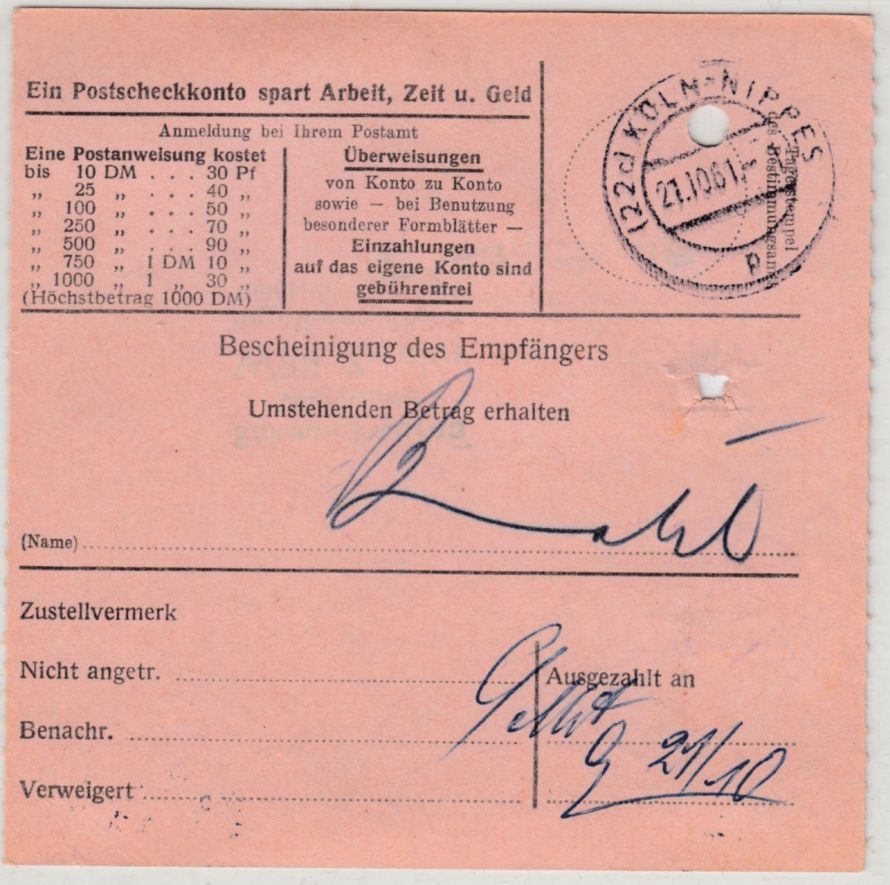 Ein Postscheckkonto spart Arbeit, Zeit u. Geld
Anmeldung bei Ihrem Postamt
Eine Postanweisung kostet
bis 10 DM . . . 30 Pf
„ 25 „ . . . 40 „
„ 100 „ . . . 50 „
„ 250 „ . . . 70 „
„ 500 „ . . . 90 „
„ 750 „ 1 DM 10 „
„ 1000 „ 1 „ 30 „
(Höchstbetrag 1000 DM)
Überweisungen
von Konto zu Konto
sowie — bei Benutzung
besonderer Formblätter —
Einzahlungen
auf das eigene Konto sind
gebührenfrei
(22c) KÖLN-NIPPES
21.10.61
p
Tagesstempel
des Bestimmungsamts
Bescheinigung des Empfängers
Umstehenden Betrag erhalten
(Name)
Zustellvermerk
Nicht angetr.
Benachr.
Verweigert
Ausgezahlt an
Selbst
21/10